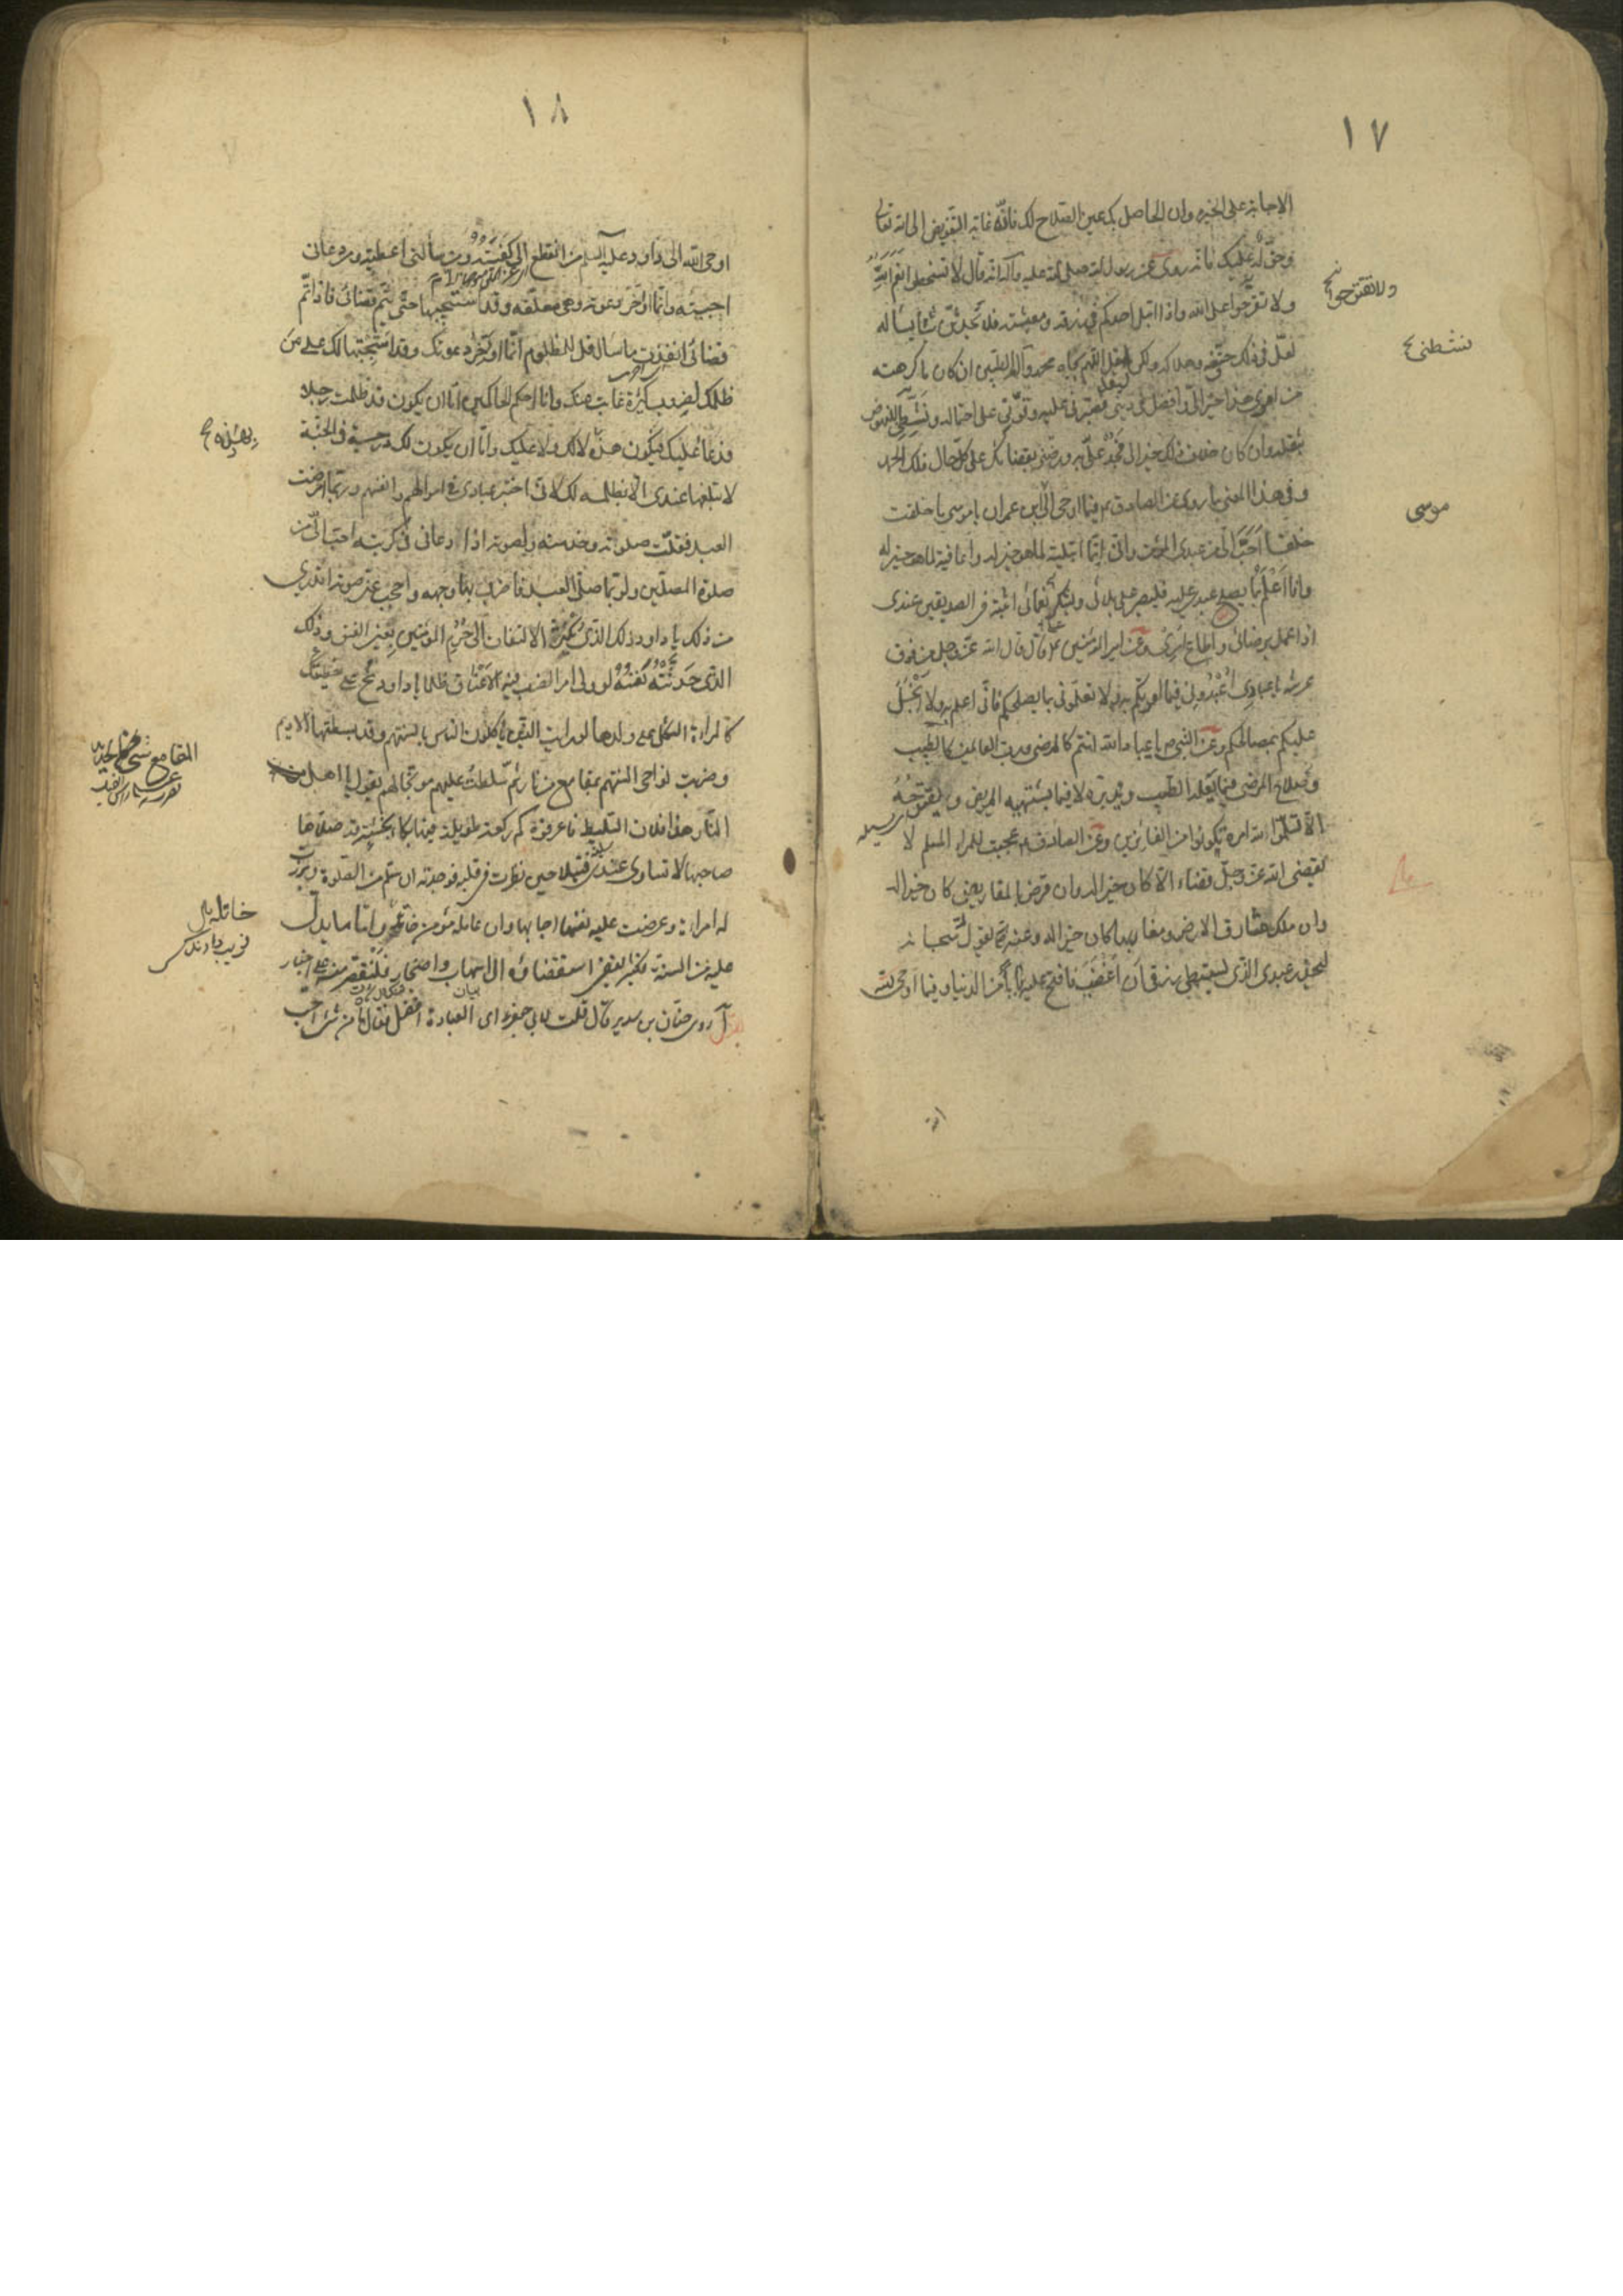 ١٧
الاجابة على الخيرة وان الحاصل بك عين الصلاح لك فانّه غاية التفويض الى الله تعالى
وحقّ له عليك فانه روى عن رسول الله صلى الله عليه وآله انه قال لا تسخطوا نعم الله
ولا تقترحوا على الله واذا ابتلى احدكم في رزقه ومعيشته فلا يحدثنّ شيأ يسأله
لعلّ في ذلك حتفه وهلاكه ولكن ليقل اللهم بجاه محمد وآله الطيبين ان كان ما كرهته
من امري هذا خيرا لي وافضل في ديني فصبّرني عليه وقوّني على احتماله ونشّطني للنهوض
بثقله وان كان خلاف ذلك خيرا لي فجد علىّ به ورضّني بقضائك على كل حال فلك الحمد
وفي هذا المعنى ما روى عن الصادق ع فيما اوحى الى ابن عمران يا موسى ما خلقت
خلقا احبّ الىّ من عبدى المؤمن وانّى انّما ابتليته لما هو خير له واعافيه لما هو خير له
وانا اعلم بما يصلح عبدى عليه فليصبر على بلائى وليشكر نعمائى اثبته فى الصديقين عندى
اذا عمل برضائى واطاع امرى وعن امير المؤمنين ع قال قال الله عزّ وجل من فوق
عرشه يا عبادى اعبدونى فيما امرتكم به ولا تعلّمونى بما يصلحكم فانّى اعلم به ولا ابخل
عليكم بمصالحكم وعن النبي ص يا عباد الله انتم كالمرضى وربّ العالمين كالطبيب
وصلاح المرضى فيما يعلمه الطبيب ويدبّره لا فيما يشتهيه المريض ويقترحه
الا فسلّموا لله امره تكونوا من الفائزين وعن الصادق ع عجبت للمرء المسلم لا
يقضى الله عزّ وجلّ قضاء الّا كان خيرا له وان قرض بالمقاريض كان خيرا له
وان ملك مشارق الارض ومغاربها كان خيرا له وعنه ع يقول سبحانه
ليحذر عبدى الذى يستبطئ رزقى ان اغضب فافتح عليه بابا من الدنيا وفيما اوحى الله
ولا تقترحوا خ
نشطنى
موسى
١٨
اوحى الله الى داود عليه السلم من انقطع الىّ كفيته ومن سألنى اعطيته ومن دعانى
اجبته وانّما اؤخّر دعوته وهى معلّقه وقد استجبتها حتّى يتم قضائى فاذا تمّ
قضائى انفذت ما سأل قل للمظلوم انّما اؤخّر دعوتك وقد استجبتها لك على من
ظلمك لضروب كثيرة غابت عنك وانا احكم الحاكمين امّا ان يكون قد ظلمت رجلا
فدعا عليك فيكون هذه لا لك ولا عليك وامّا ان يكون لك درجة فى الجنّة
لا تبلغها عندى الّا بظلمه لك لانّى اختبر عبادى فى اموالهم وانفسهم وربّما امرضت
العبد فقلّت صلوته وخدمته ولصوته اذا دعانى فى كربته احبّ الىّ من
صلوة المصلّين ولربّما صلّى العبد فاضرب بها وجهه واحجب عنّى صوته اتدرى
من ذلك يا داود ذلك الذى يكثر الالتفات الى حرم المؤمنين بعين الفسق وذلك
الذى حدثته نفسه لو ولى امرا لضرب فيه الاعناق ظلما يا داود نح على خطيئتك
كالمراة الثكلى على ولدها لو رايت الذين يأكلون الناس بالسنتهم وقد بسطتها الاديم
وضربت نواحى السنتهم بمقامع من نار ثم سلّطت عليهم موبّخا لهم يقول يا اهل
النار هذا فلان السليط فاعرفوه كم ركعة طويلة فيها بكاء بخشية قد صلاها
صاحبها لا تساوى عندى فتيلا حين نظرت فى قلبه فوجدته ان سلّم من الصلوة وبرزت
له امراة وعرضت عليه نفسها اجابها وان عامله مؤمن خاتله وامّا ما يدلّ
عليه من السنة
روى حنان بن سدير قال قلت لابى جعفر ع اى العبادة افضل فقال ما من شئ احب
المقامع
خاتله